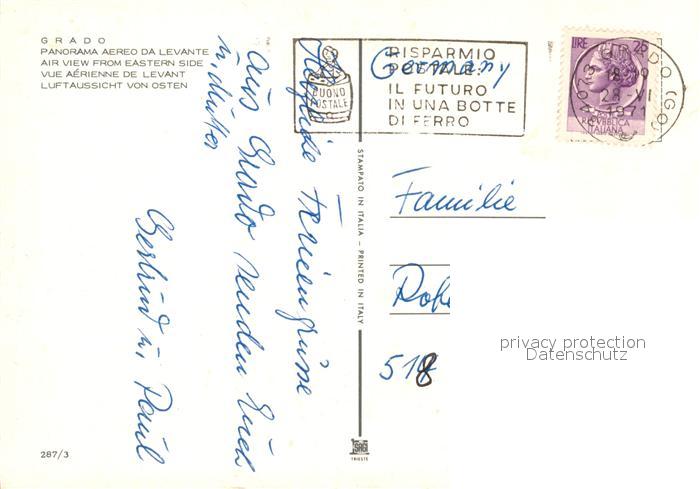 GRADO
PANORAMA AEREO DA LEVANTE
AIR VIEW FROM EASTERN SIDE
VUE AÉRIENNE DE LEVANT
LUFTAUSSICHT VON OSTEN
Herzliche Feriengrüsse
aus Grado senden Euch
u. Mutter
Gertrud u. Paul
287/3
STAMPATO IN ITALIA - PRINTED IN ITALY
SAGI
TRIESTE
BUONO
POSTALE
RISPARMIO
POSTALE:
IL FUTURO
IN UNA BOTTE
DI FERRO
Germany
LIRE 25
REPVBBLICA
ITALIANA
GRADO (GO)
18-19
28-VI
197
Familie
518
privacy protection
Datenschutz